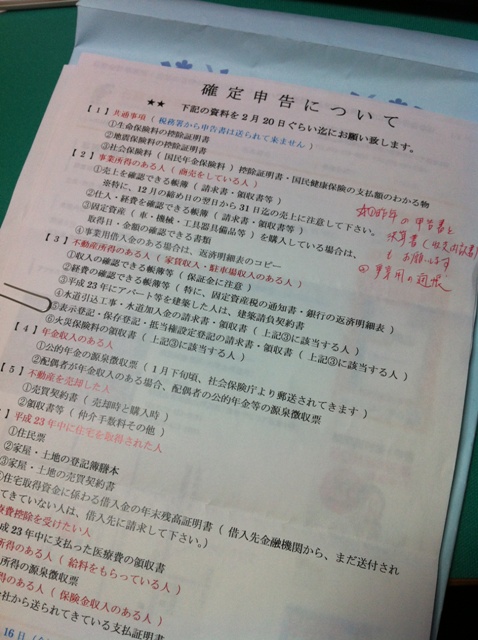 確定申告について
★★ 下記の資料を2月20日ぐらい迄にお願い致します。
【1】共通事項（税務署から申告書は送られて来ません）
①生命保険料の控除証明書
②地震保険料の控除証明書
③社会保険料（国民年金保険料）控除証明書・国民健康保険の支払額のわかる物
【2】事業所得のある人（商売をしている人）
①売上を確認できる帳簿（請求書・領収書等）
※特に、12月の締め日の翌日から31日迄の売上に注意して下さい。
②仕入・経費を確認できる帳簿（請求書・領収書等）
③固定資産（車・機械・工具器具備品等）を購入している場合は、
取得日・金額の確認できる書類
④事業用借入金のある場合は、返済明細表のコピー
昨年の申告書と
決算書（収支内訳書）
もお願いします
事業用の通帳
【3】不動産所得のある人（家賃収入・駐車場収入のある人）
①収入の確認できる帳簿等（保証金に注意）
②経費の確認できる帳簿等（特に、固定資産税の通知書・銀行の返済明細表）
③平成23年にアパート等を建築した人は、建築請負契約書
④水道引込工事・水道加入金の請求書・領収書（上記③に該当する人）
⑤表示登記・保存登記・抵当権設定登記の請求書・領収書（上記③に該当する人）
⑥火災保険料の領収書（上記③に該当する人）
【4】年金収入のある人
①公的年金の源泉徴収票（1月下旬頃、社会保険庁より郵送されてきます）
②配偶者が年金収入のある場合、配偶者の公的年金等の源泉徴収票
【5】不動産を売却した人
①売買契約書（売却時と購入時）
②領収書等（仲介手数料その他）
】平成23年中に住宅を取得された人
①住民票
②家屋・土地の登記簿謄本
③家屋・土地の売買契約書
住宅取得資金に係わる借入金の年末残高証明書（借入先金融機関から、まだ送付され
てきていない人は、借入先に請求して下さい。）
療費控除を受けたい人
成23年中に支払った医療費の領収書
所得のある人（給料をもらっている人）
所得の源泉徴収票
得のある人（保険金収入のある人）
会社から送られてきている支払証明書
16日